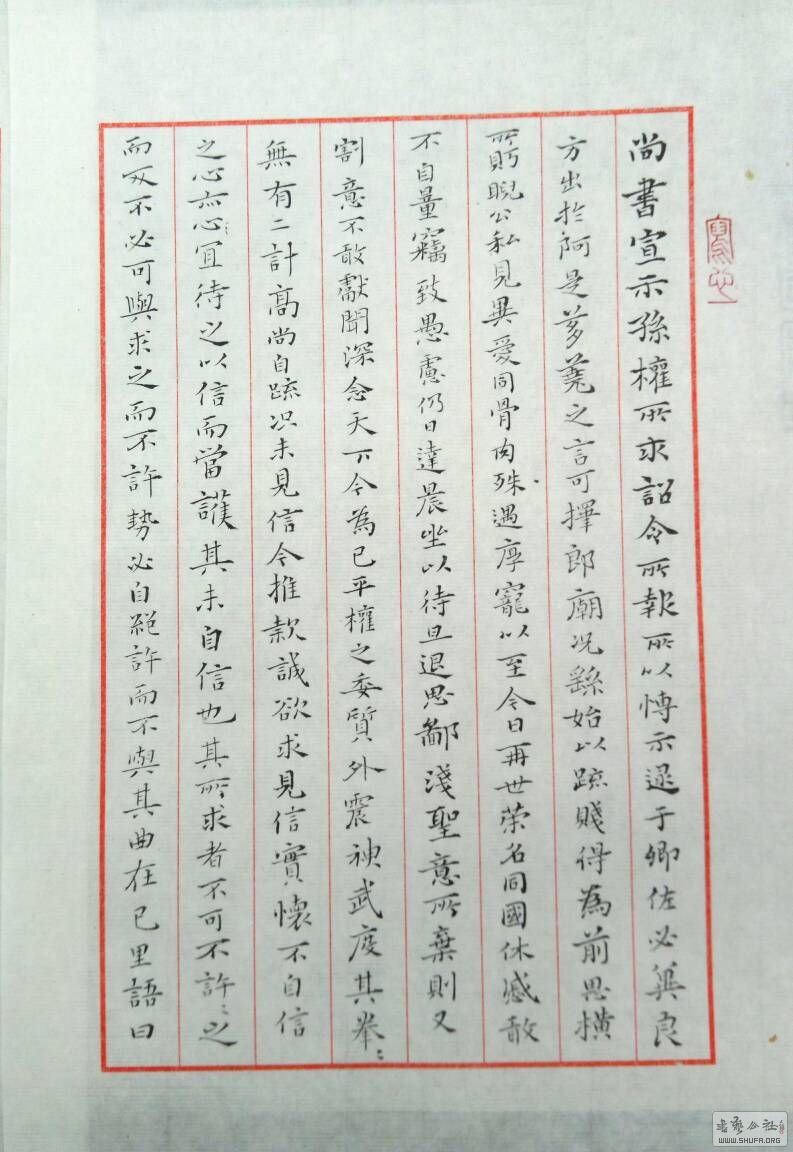 尚書宣示孫權所求詔令所報所以博示逮于卿佐必冀良
方出於阿是芻蕘之言可擇郎廟况繇始以疏賤得為前恩橫
所眄睨公私見異愛同骨肉殊遇厚寵以至今日再世榮名同國休慼敢
不自量竊致愚慮仍日達晨坐以待旦退思鄙淺聖意所棄則又
割意不敢獻聞深念天下今為已平權之委質外震神武度其拳〻
無有二計高尚自疏况未見信今推款誠欲求見信實懷不自信
之心亦心〻宜待之以信而當護其未自信也其所求者不可不許〻之
而反不必可與求之而不許勢必自絕許而不與其曲在己里語曰
書藝公社
WWW.SHUFA.ORG